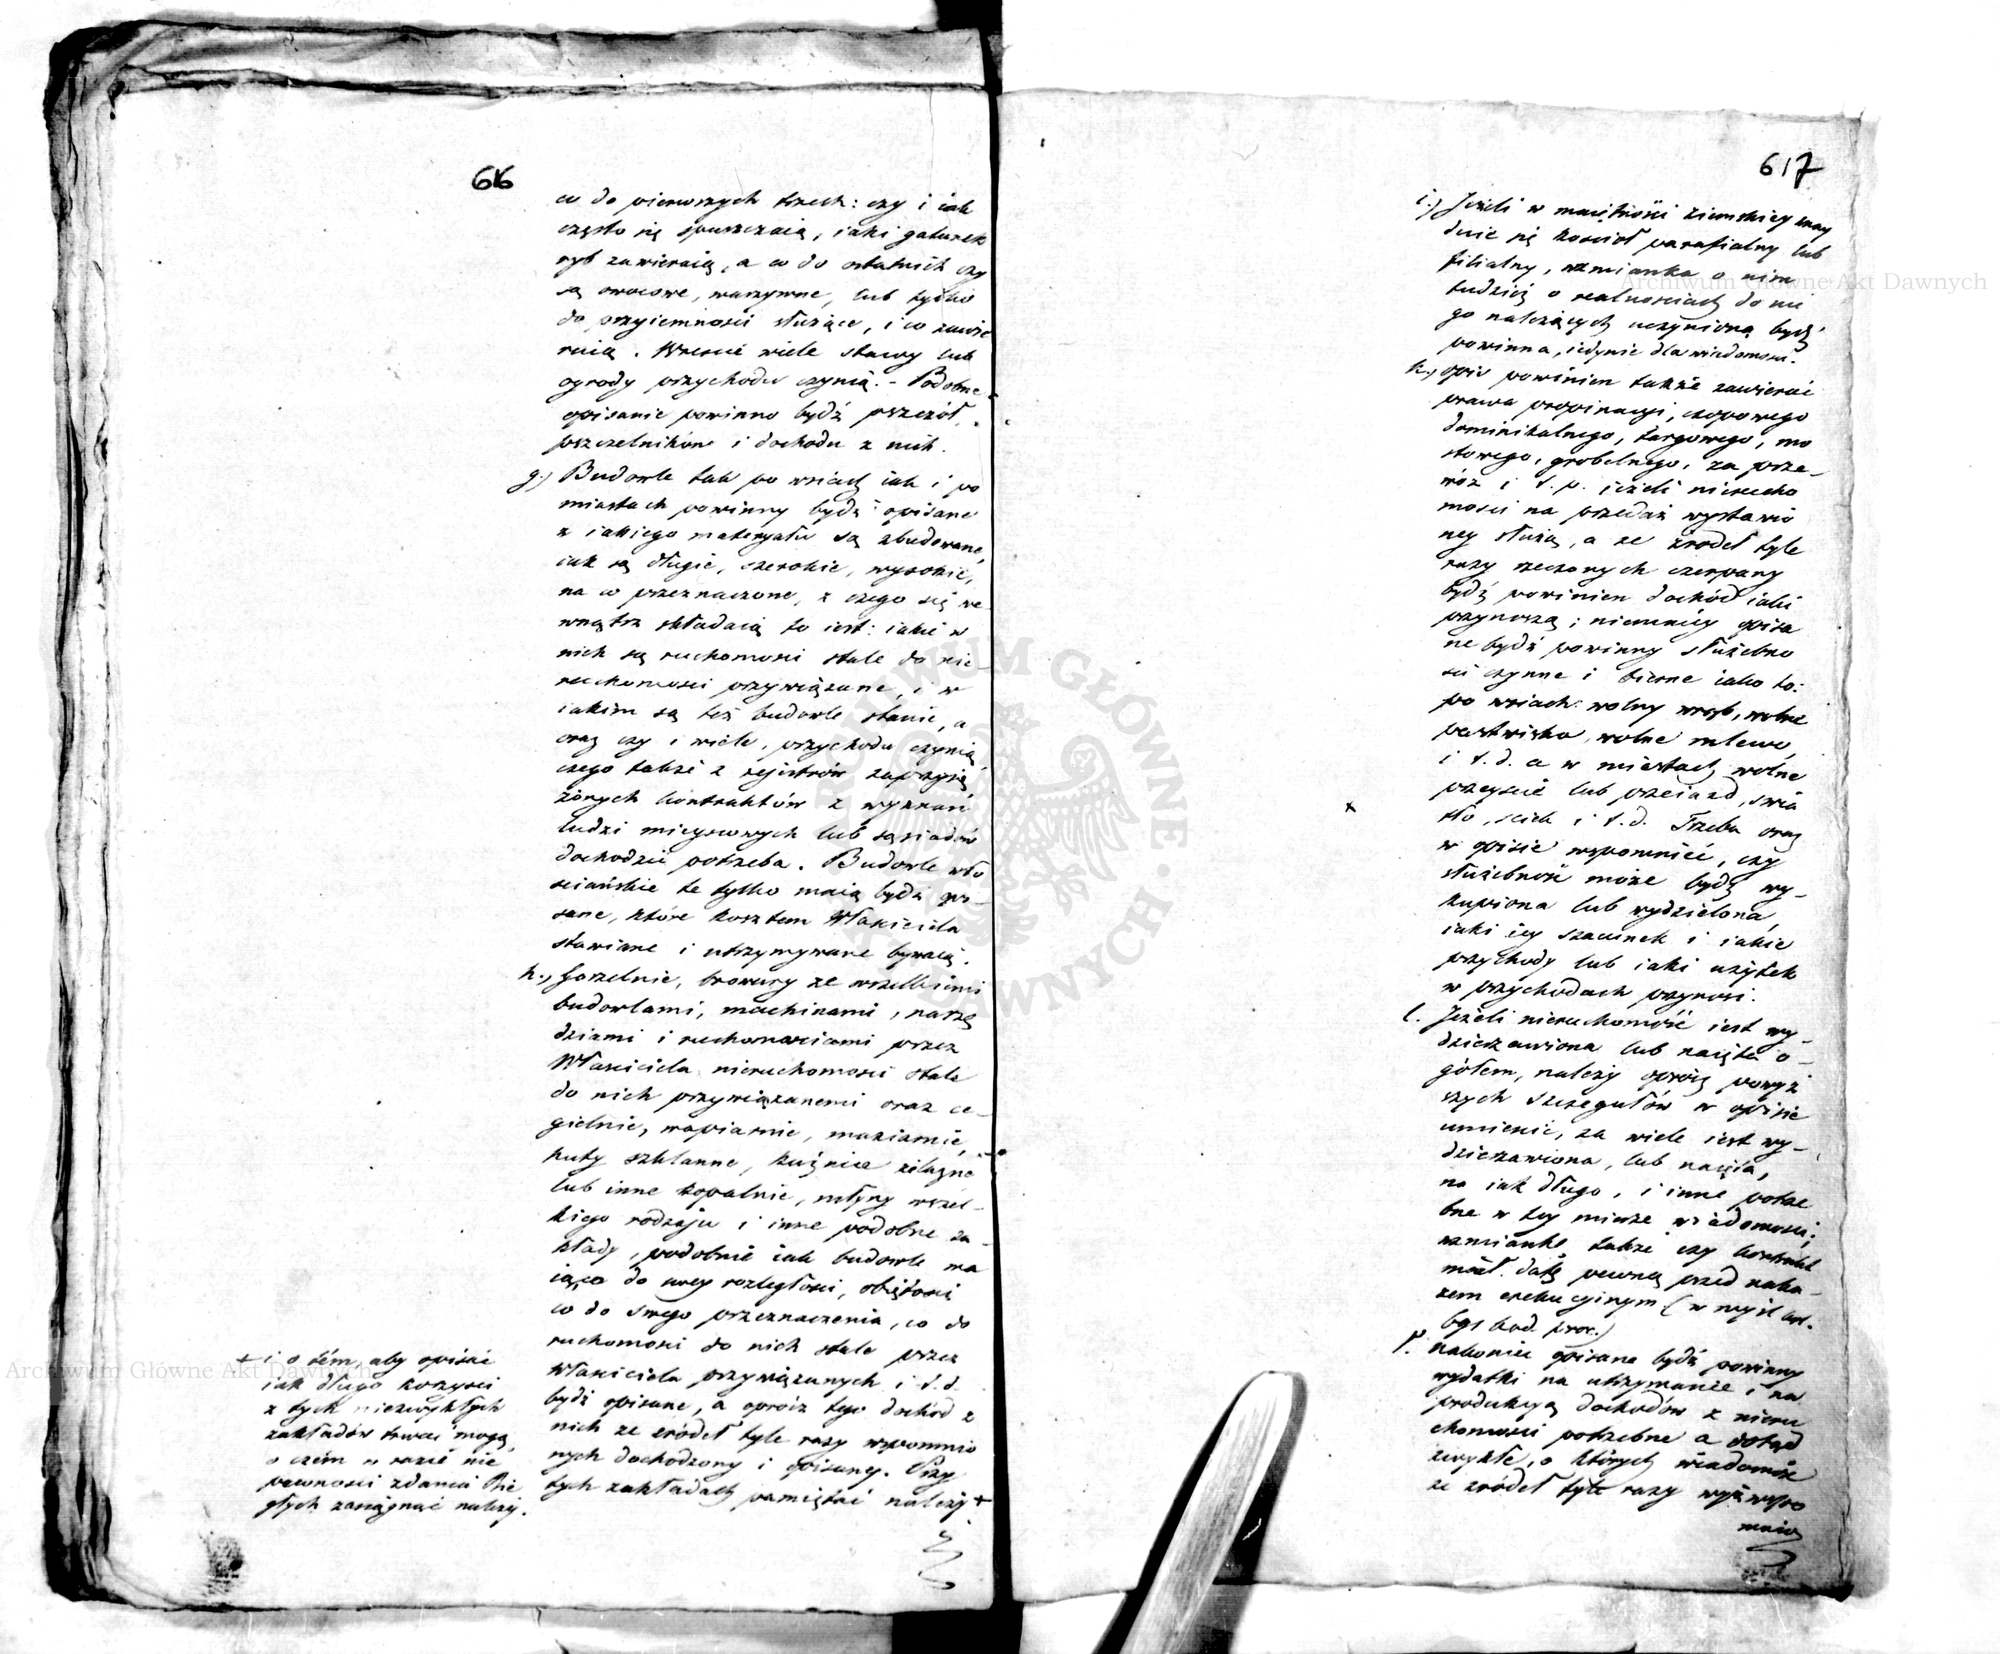 616
co do pierwszych trzech: czy i iak
często się spuszczaią, iaki gatunek
ryb zawieraią, a co do ostatnich czy
są owocowe, warzywne, lub tylko
do przyiemności służące, i co zawie
raią. Wreście wiele stawy lub
ogrody przychodu czynią. - Podobne
opisanie powinno bydź pszczół,
pszczelników i dochodu z nich.
g.) Budowle tak po wsiach iak i po
miastach powinny bydź opisane
z iakiego materyału są zbudowane,
iak są długie, szerokie, wysokie,
na co przeznaczone, z czego się we
wnątrz składaią to iest: iakie w
nich są ruchomości stale do nie-
ruchomości przywiązane, i w
iakim są też budowle stanie, a
oraz czy i wiele, przychodu czynią
czego także z rejestrów zaprzysię
żonych kontraktów z wyznań
ludzi mieyscowych lub sąsiadów
dochodzić potrzeba. Budowle wło
sciańskie te tylko maią bydź opi-
sane, które kosztem Właściciela
stawiane i utrzymywane bywaią.
h.) Gorzelnie, browary ze wszelkiemi
budowlami, machinami, narzę
dziami i ruchomościami przez
Właściciela nieruchomości stale
do nich przywiązanemi oraz ce-
gielnie, wapiarnie, maziarnie,
huty szklanne, kuźnice żelazne
lub inne kopalnie, młyny wszel-
kiego rodzaju i inne podobne za-
kłady, podobnie iak budowle ma
ią co do swey rozległości, obiętości
co do swego przeznaczenia, co do
ruchomości do nich stale przez
Właściciela przywiązanych i t.d.
bydź opisane, a oprócz tego dochód z
nich ze źródeł tyle razy wspomnio
nych dochodzony i opisany. Przy
tych zakładach pamiętać należy +
+ i o tém, aby opisać
iak długo korzyści
z tych niezwykłych
zakładów trwać mogą,
o czém w razie nie
pewności zdania Bie
głych zasięgnąć należy.
617
i.) Jeżeli w maiętności ziemskiey znay
duie się kościół parafialny lub
filialny, wzmianka o nim
tudzież o realnościach do nie
go należących uczynioną bydź
powinna, iedynie dla wiadomości.
k.) Opis powinien także zawierać
prawa propinacyi, czopowego
dominikalnego, targowego, mo
stowego, grobelnego, za prze-
wóz i t.p. ieżeli nierucho
mości na przedaż wystawio
ney służą, a ze źródeł tyle
razy rzeczonych czerpany
bydź powinien dochód iaki
przynoszą; niemniéy opisa
ne bydź powinny służebno
ści czynne i bierne iako to:
po wsiach: wolny wrąb, wolne
pastwisko, wolne mlewo,
i t.d. a w miastach wolne
przeyście lub przeiazd, świa
tło, ściek i t.d. Trzeba oraz
w opisie wspomnieć, czy
służebność może bydź wy-
kupiona lub wydzielona,
iaki iey szacunek i iakie
przychody lub iaki użytek
w przychodach przynosi.
l. Jeżeli nieruchomość iest wy-
dzierzawiona lub naięta o-
gółem, należy oprócz powyż
szych szczegułów w opisie
umieścić, za wiele iest wy-
dzierzawiona, lub naięta,
na iak długo, i inne potrze
bne w tey mierze wiadomości,
wzmiankę także czy kontrakt
miał datę pewną przed naka-
zem exekucyinym (w myśl art.
691 kod. proc.)
Nakoniec opisane bydź powinny
wydatki na utrzymanie i na
produkcyą dochodów z nieru
chomości potrzebne a dotąd
zwykłe, o których wiadomość
ze źródeł tyle razy wyż wspo